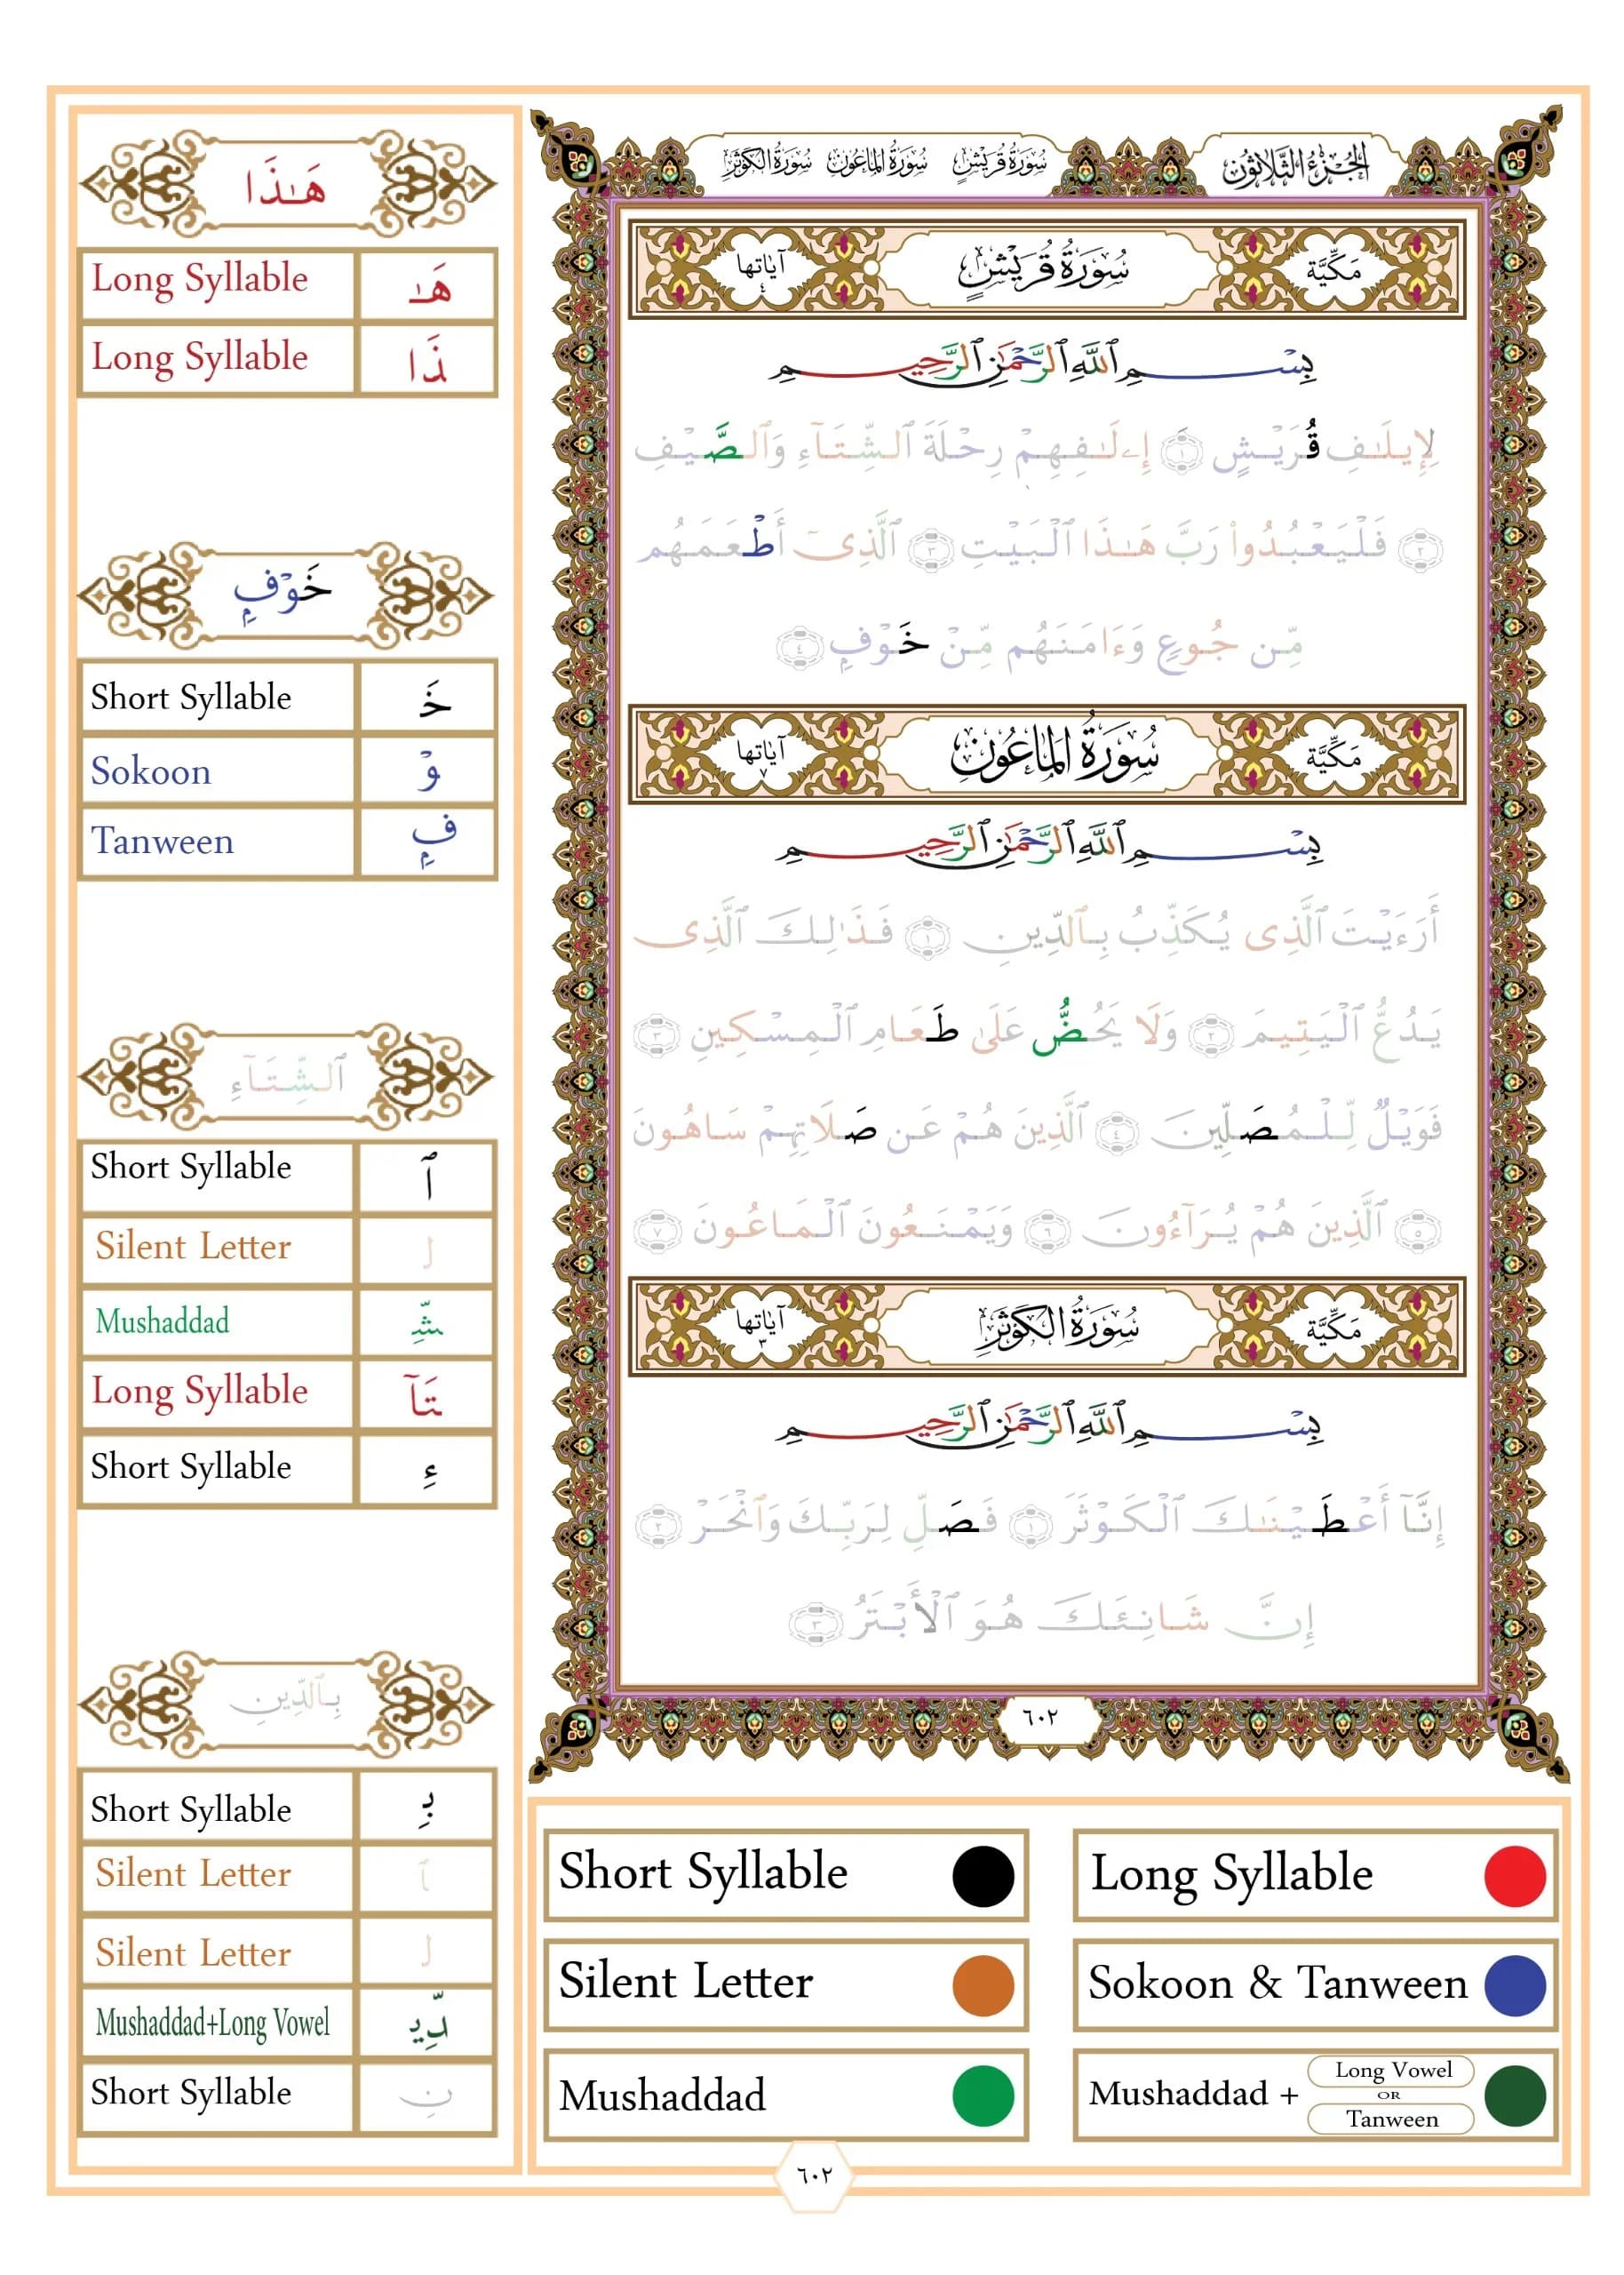 الجُزءُ الثَّلَاثُون سُورَةُ قُرَيْشٍ سُورَةُ المَاعُونِ سُورَةُ الكَوْثَرِ
مَكِّيَّة سُورَةُ قُرَيْشٍ آيَاتها ٤
بِسْمِ ٱللَّهِ ٱلرَّحْمَٰنِ ٱلرَّحِيمِ
لِإِيلَٰفِ قُرَيْشٍ ١ إِۦلَٰفِهِمْ رِحْلَةَ ٱلشِّتَآءِ وَٱلصَّيْفِ
٢ فَلْيَعْبُدُوا۟ رَبَّ هَٰذَا ٱلْبَيْتِ ٣ ٱلَّذِىٓ أَطْعَمَهُم
مِّن جُوعٍ وَءَامَنَهُم مِّنْ خَوْفٍۭ ٤
مَكِّيَّة سُورَةُ المَاعُونِ آيَاتها ٧
بِسْمِ ٱللَّهِ ٱلرَّحْمَٰنِ ٱلرَّحِيمِ
أَرَءَيْتَ ٱلَّذِى يُكَذِّبُ بِٱلدِّينِ ١ فَذَٰلِكَ ٱلَّذِى
يَدُعُّ ٱلْيَتِيمَ ٢ وَلَا يَحُضُّ عَلَىٰ طَعَامِ ٱلْمِسْكِينِ ٣
فَوَيْلٌ لِّلْمُصَلِّينَ ٤ ٱلَّذِينَ هُمْ عَن صَلَاتِهِمْ سَاهُونَ
٥ ٱلَّذِينَ هُمْ يُرَآءُونَ ٦ وَيَمْنَعُونَ ٱلْمَاعُونَ ٧
مَكِّيَّة سُورَةُ الكَوْثَرِ آيَاتها ٣
بِسْمِ ٱللَّهِ ٱلرَّحْمَٰنِ ٱلرَّحِيمِ
إِنَّآ أَعْطَيْنَٰكَ ٱلْكَوْثَرَ ١ فَصَلِّ لِرَبِّكَ وَٱنْحَرْ ٢
إِنَّ شَانِئَكَ هُوَ ٱلْأَبْتَرُ ٣
٦٠٢
هَٰذَا
Long Syllable هَٰ
Long Syllable ذَا
خَوْفٍۭ
Short Syllable خَ
Sokoon وْ
Tanween فٍۭ
ٱلشِّتَآءِ
Short Syllable ٱ
Silent Letter ل
Mushaddad شِّ
Long Syllable تَآ
Short Syllable ءِ
بِٱلدِّينِ
Short Syllable بِ
Silent Letter ٱ
Silent Letter ل
Mushaddad+Long Vowel دِّي
Short Syllable نِ
Short Syllable Long Syllable
Silent Letter Sokoon & Tanween
Mushaddad Mushaddad + Long Vowel OR Tanween
٦٠٢